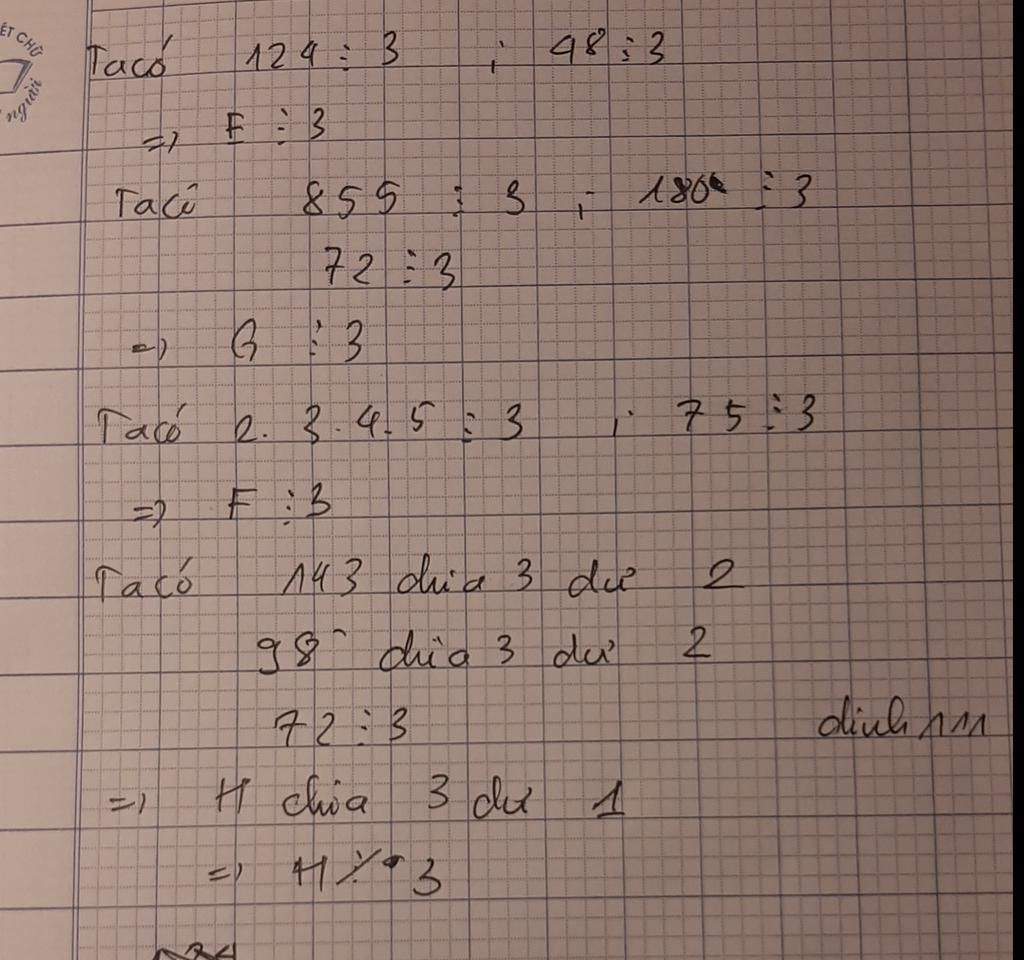 ẾT CHỮ
người
Ta có 124 ⋮ 3 ; 48 ⋮ 3
=> E ⋮ 3
Ta có 855 ⋮ 3 ; 180 ⋮ 3
72 ⋮ 3
=> G ⋮ 3
Ta có 2. 3. 4. 5 ⋮ 3 ; 75 ⋮ 3
=> F ⋮ 3
Ta có 143 chia 3 dư 2
98 chia 3 dư 2
72 ⋮ 3
dinh 111
=> H chia 3 dư 1
=> H ⋮̸ 3